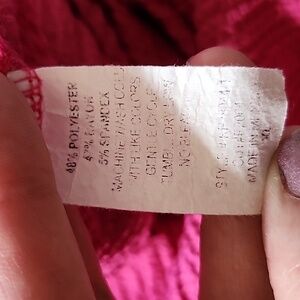 48% POLYESTER
47% RAYON
5% SPANDEX
MACHINE WASH COLD
WITH LIKE COLORS
GENTLE CYCLE
TUMBLE DRY LOW
NO BLEACH
STYLE
MADE IN
XL